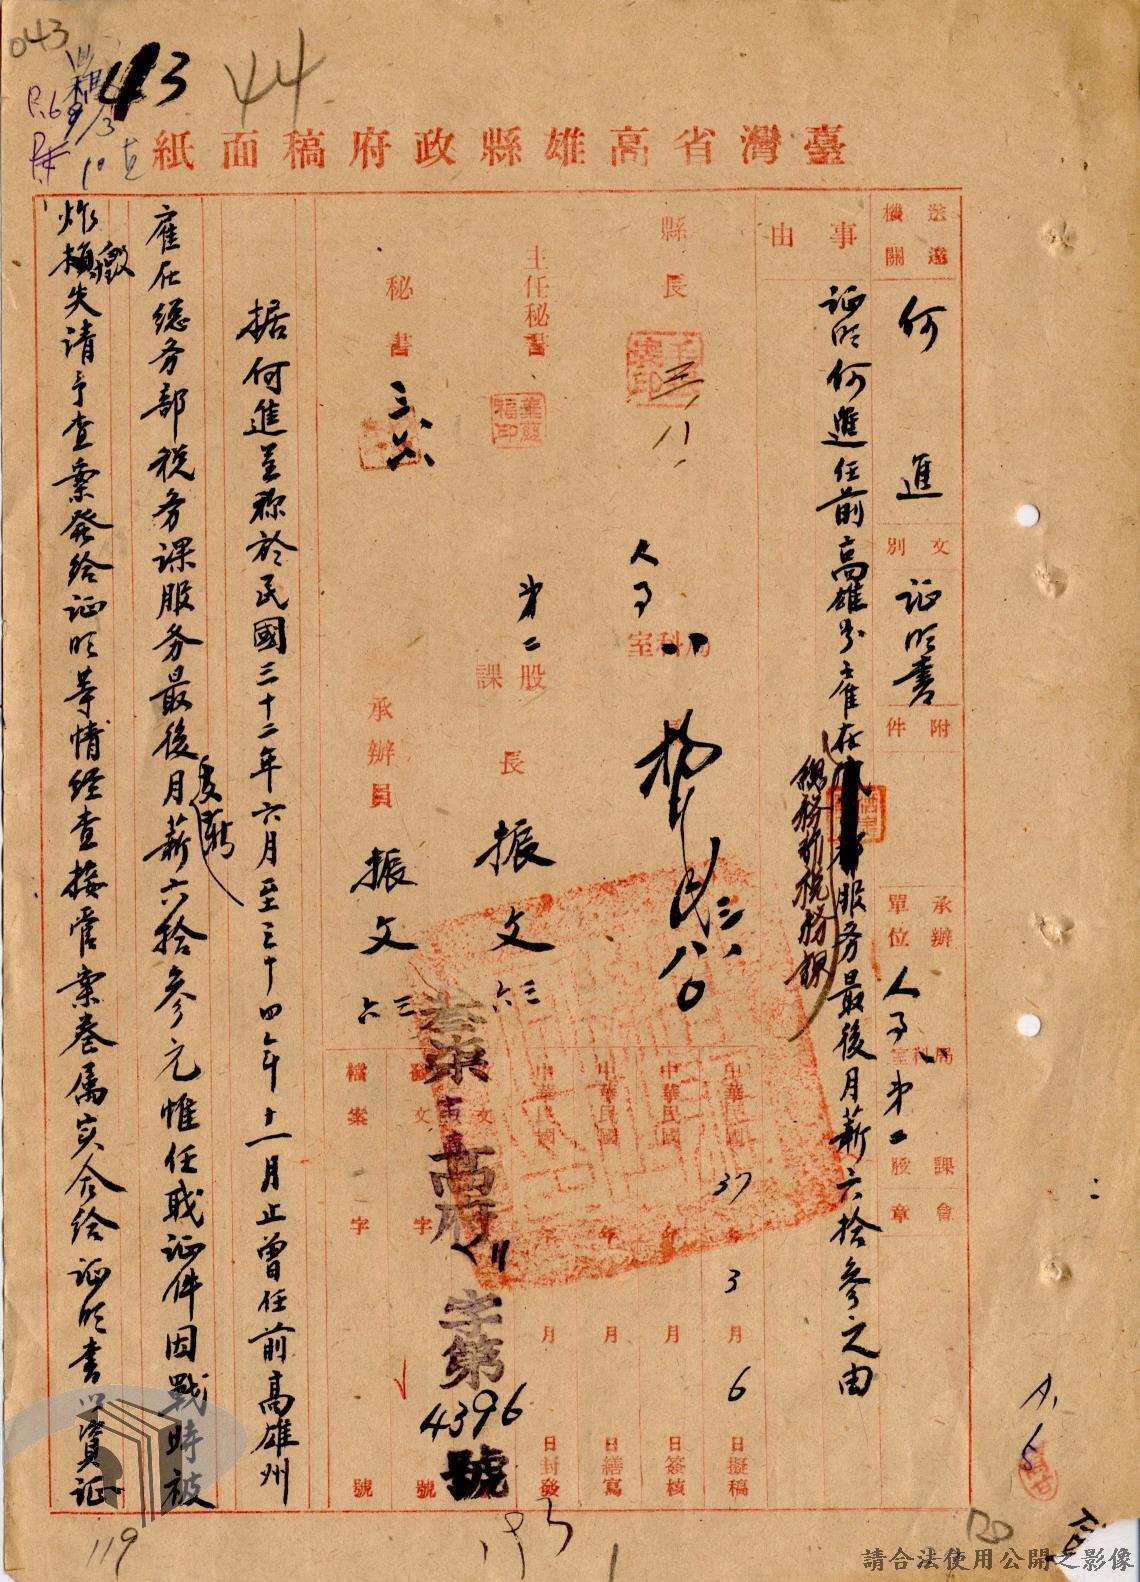 043
43
44
臺灣省高雄縣政府稿面紙
送達機關
何進
文別
証明書
附件
承辦單位
人事
局科室
第二
課會股章
事由
証明何進任前高雄州雇在
總務部税務課
服务最後月薪六拾參之由
縣長
主任秘書
秘書
局科室
人事
課股長
第二
振文
三六
承辦員
振文
三六
中華民國37年3月6日擬稿
中華民國年月日簽核
中華民國年月日繕寫
中華民國年月日封發
叁柒
高府
字第4396號
檔案字號
据何進呈称於民國三十二年六月至三十四年十一月止曾任前高雄州
雇在總务部税务課服务最後月
支薪
薪六拾參元惟任職証件因戰時被
炸
燬
損失請予查案發給証明等情經查接管案卷属实合給証明書以資証
119
120
請合法使用公開之影像